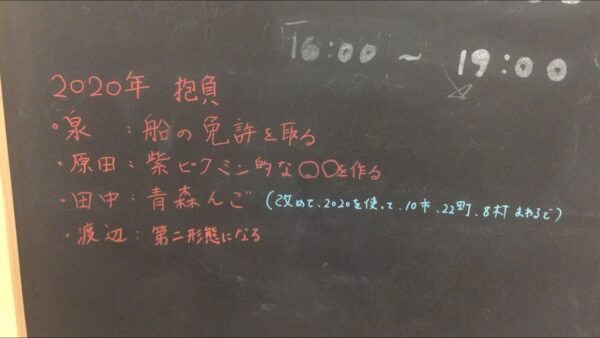 16:00 ~ 19:00
2020年 抱負
・泉 : 船の免許を取る
・原田 : 紫ピクミン的な〇〇を作る
・田中 : 青森んご (改めて、2020を使って、10市、22町、8村 まわるで)
・渡辺 : 第二形態になる